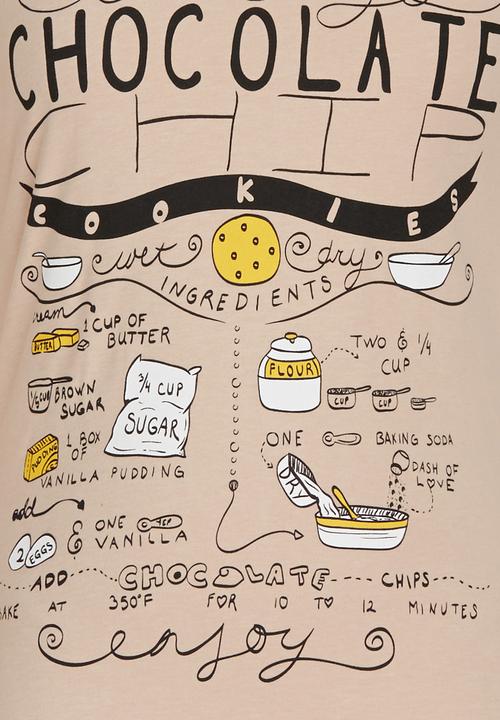 CHOCOLATE
CHIP
COOKIES
wet
dry
INGREDIENTS
1 CUP OF
BUTTER
BUTTER
BROWN
SUGAR
3/4 CUP
SUGAR
PUDDING
1 BOX
OF
VANILLA PUDDING
add
2 EGGS
& ONE TSP
VANILLA
FLOUR
TWO & 1/4
CUP
CUP CUP
ONE BAKING SODA
DRY
DASH OF
LOVE
ADD CHOCOLATE CHIPS
AT 350°F FOR 10 TO 12 MINUTES
enjoy